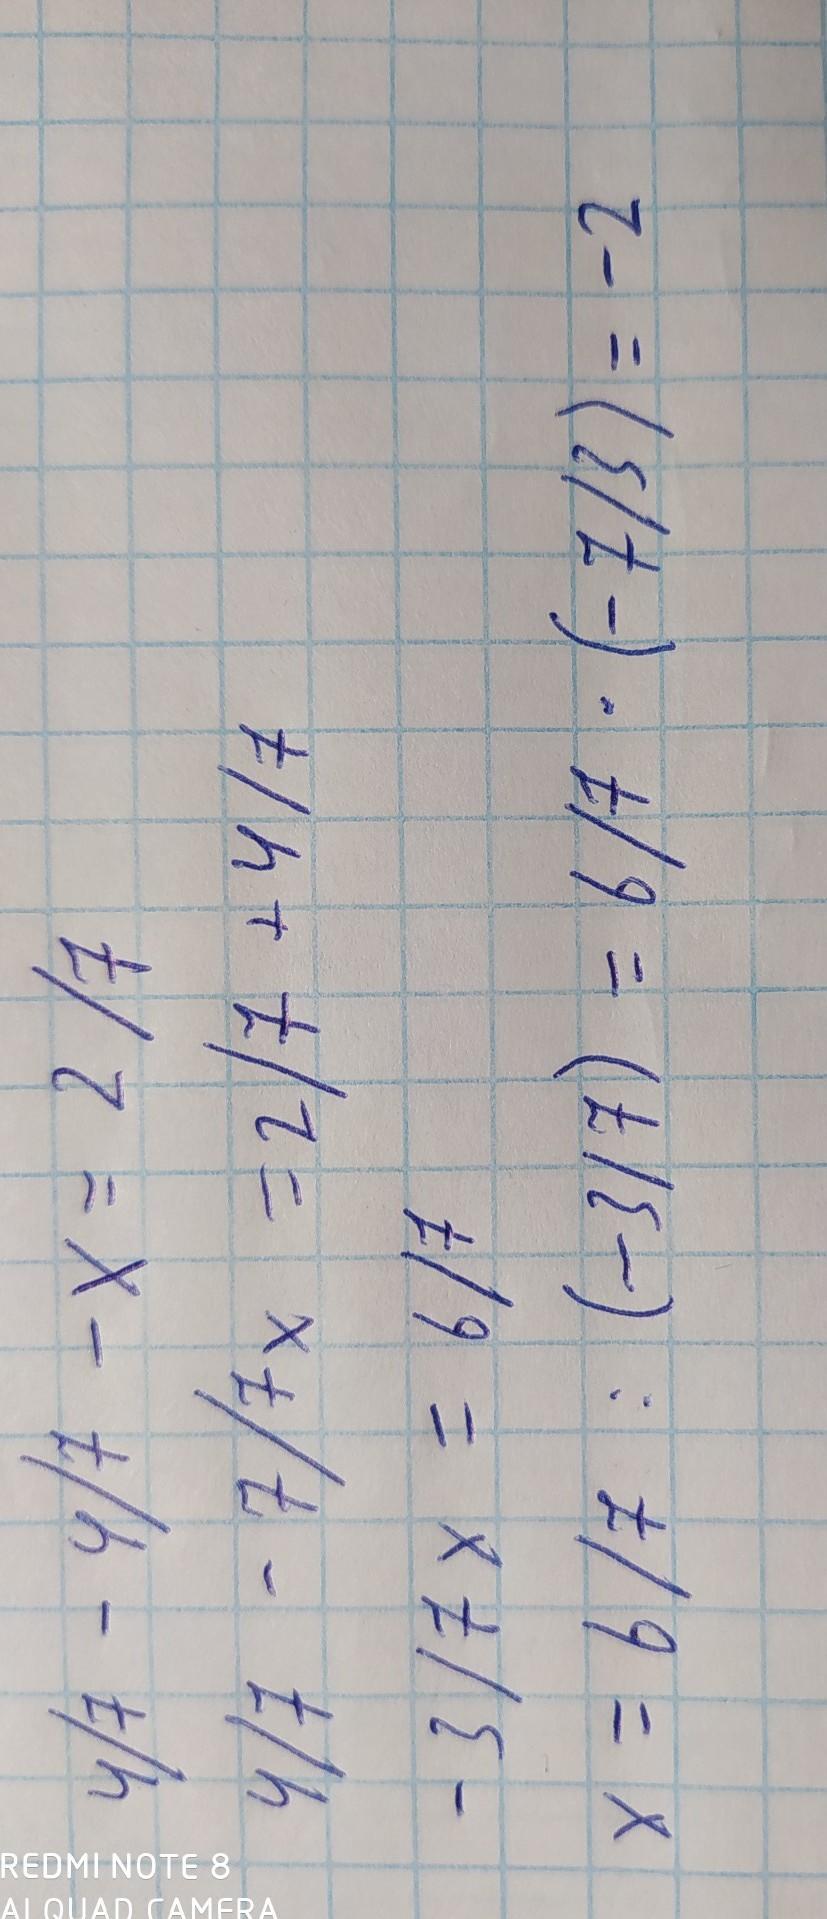 4/7 - 4/7 - x = 2/7
4/7 - 7/7x = 2/7 + 4/7
-3/7x = 6/7
x = 6/7 : (-3/7) = 6/7 · (-7/3) = -2
REDMI NOTE 8
AI QUAD CAMERA